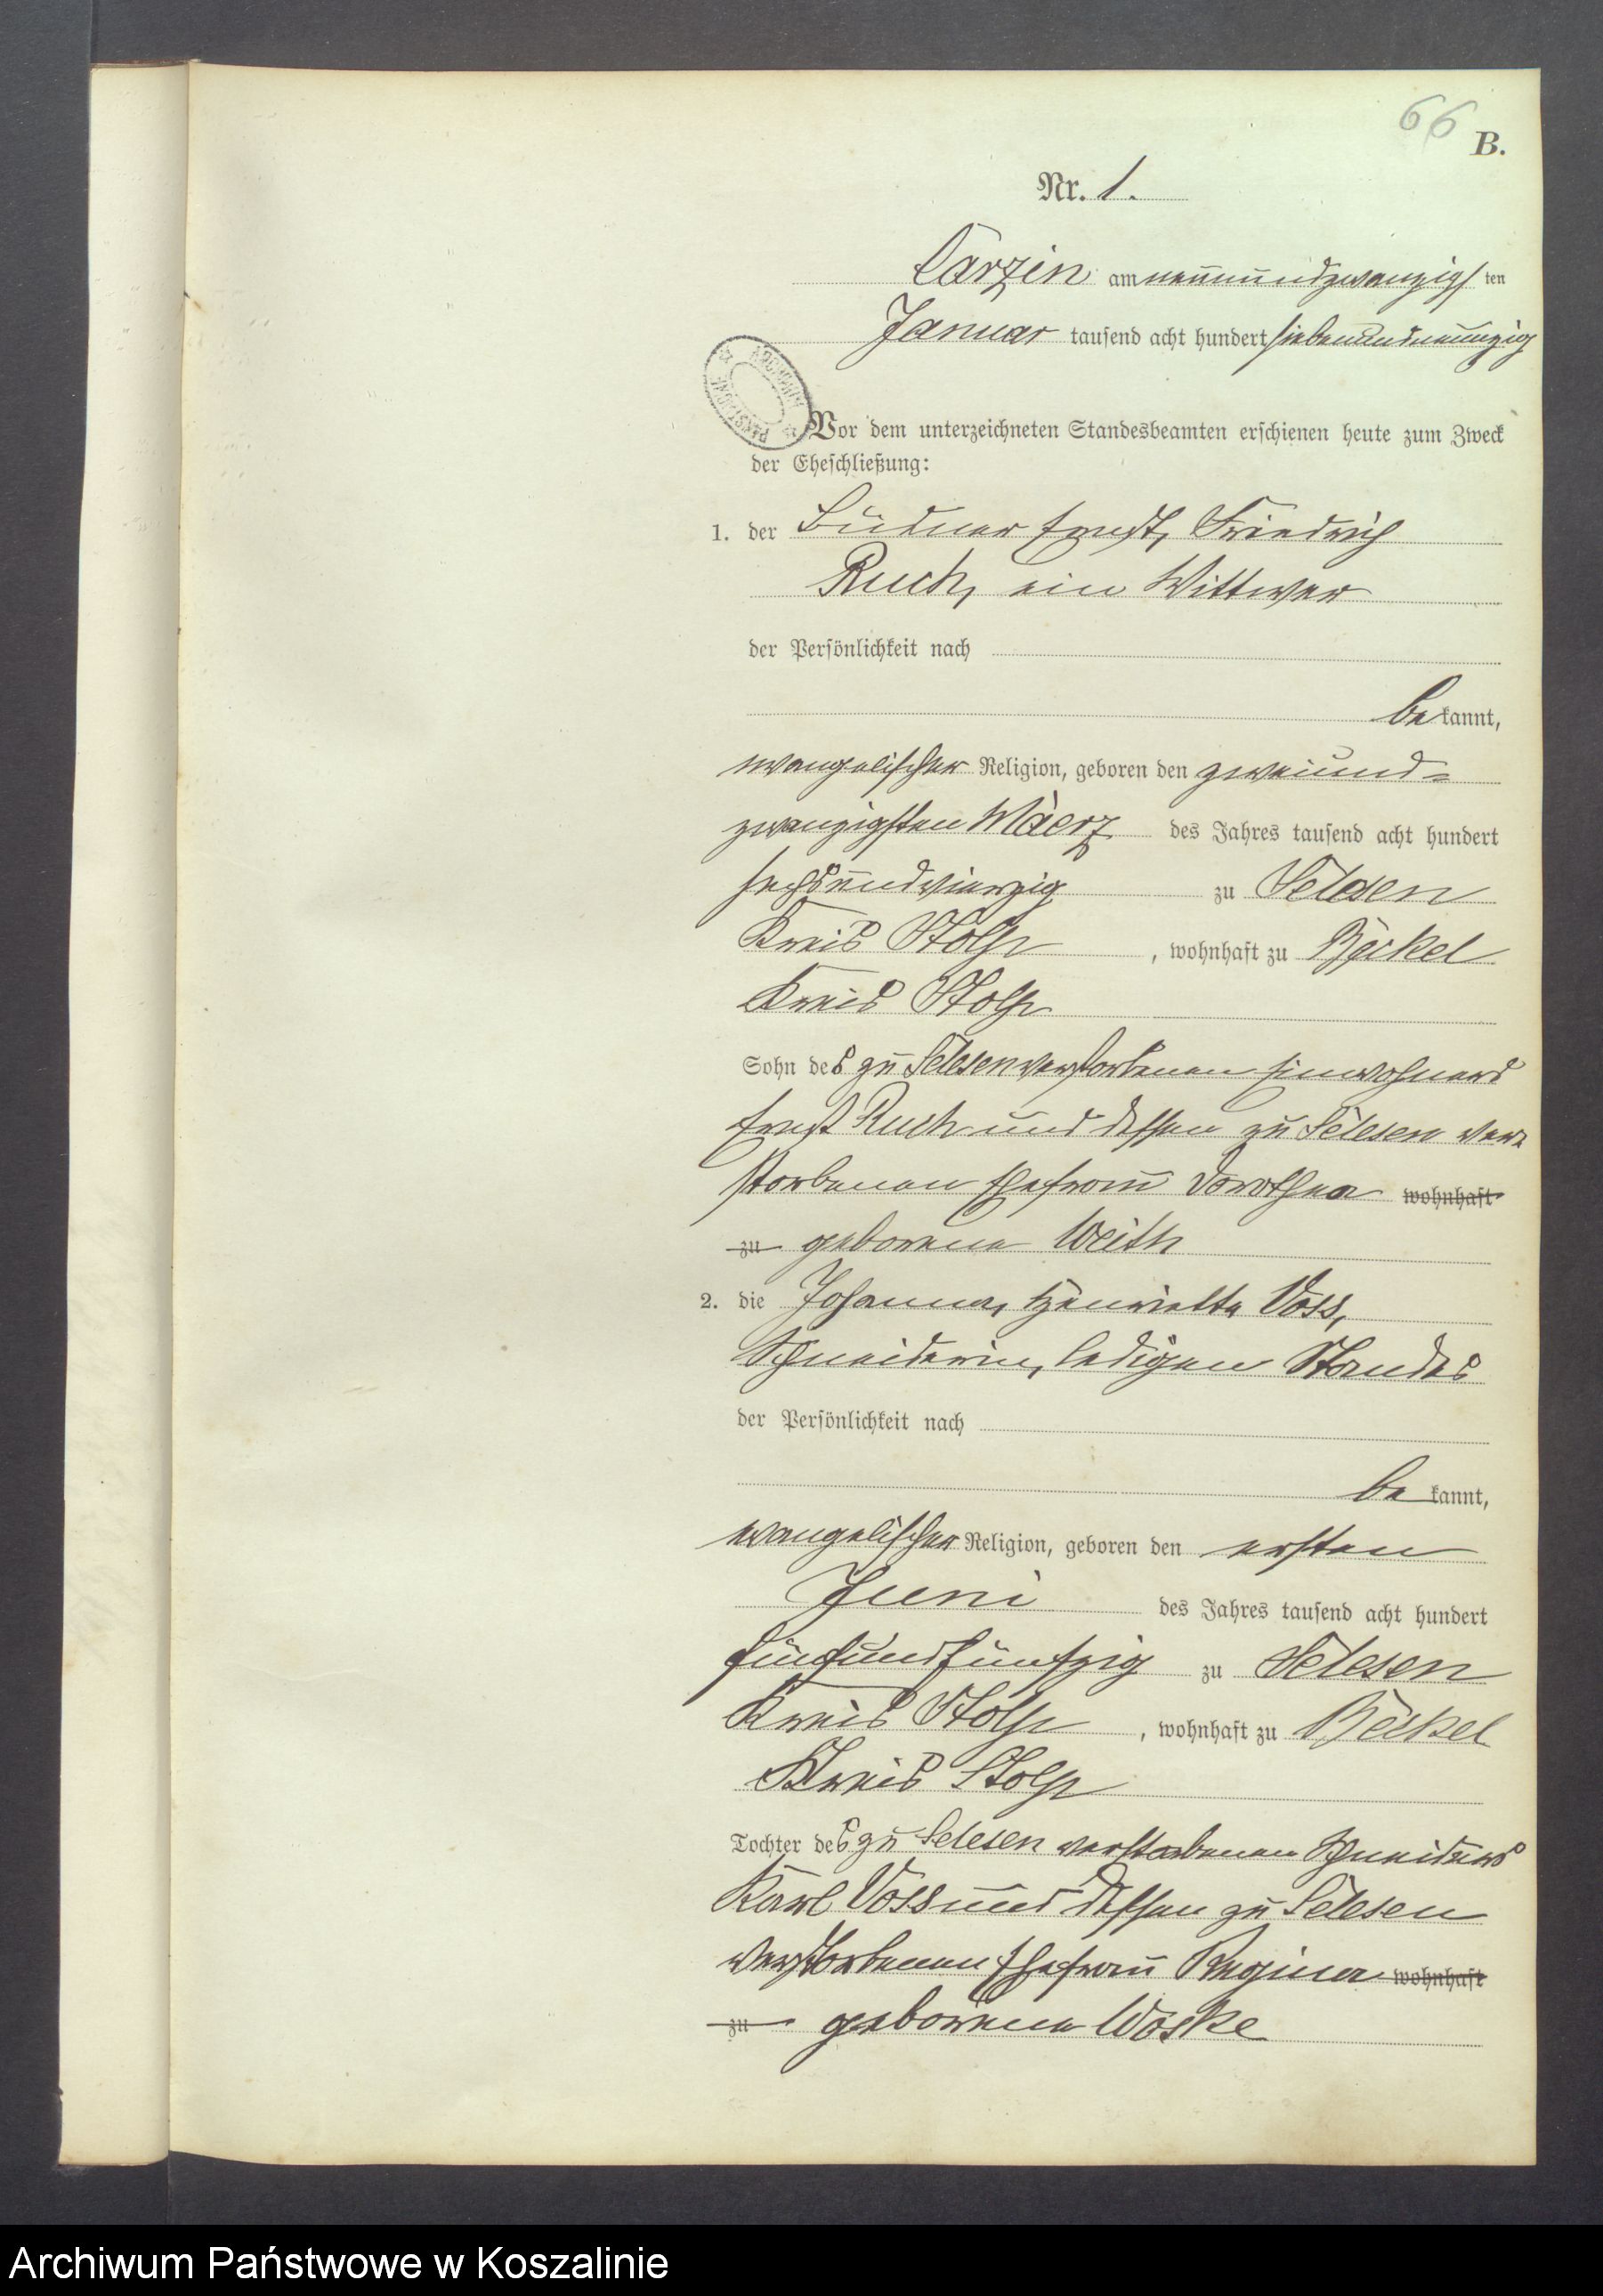 66
B.
Nr. 1.
Carzin am neunundzwanzigsten
Januar tausend acht hundert siebenundneunzig
ARCHIWUM PAŃSTWOWE
Vor dem unterzeichneten Standesbeamten erschienen heute zum Zweck
der Eheschließung:
1. der Büdner Ernst, Friedrich
Ruch, ein Wittwer
der Persönlichkeit nach
bekannt,
evangelischer Religion, geboren den zweiund-
zwanzigsten Maerz des Jahres tausend acht hundert
sechsundvierzig zu Selesen
Kreis Stolp, wohnhaft zu
Kreis Stolp
Sohn des zu Selesen verstorbenen Einwohners
Ernst Ruch und dessen zu Selesen ver-
storbenen Ehefrau Dorothea wohnhaft
zu geborene Weith
2. die Johanna, Henriette Voss,
Schneiderin, ledigen Standes
der Persönlichkeit nach
bekannt,
evangelischer Religion, geboren den ersten
Juni des Jahres tausend acht hundert
fünfundfünfzig zu Selesen
Kreis Stolp, wohnhaft zu
Kreis Stolp
Tochter des zu Selesen verstorbenen Schneiders
Karl Voss und dessen zu Selesen
verstorbenen Ehefrau Regina wohnhaft
zu geborene Woske
Archiwum Państwowe w Koszalinie